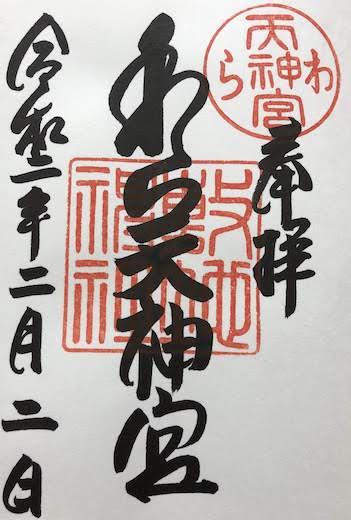 奉拝
わら天神宮
敷地神社
わら天神宮
令和二年二月二日